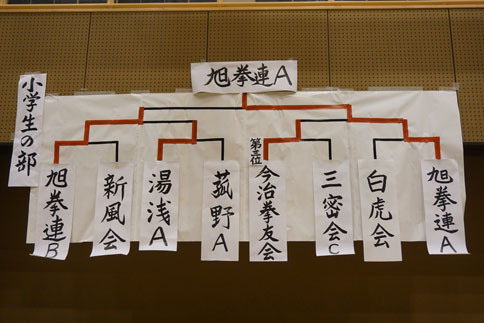 旭拳連A
小学生の部
旭拳連B
新風会
湯浅A
菰野A
第三位
今治拳友会
三密会C
白虎会
旭拳連A